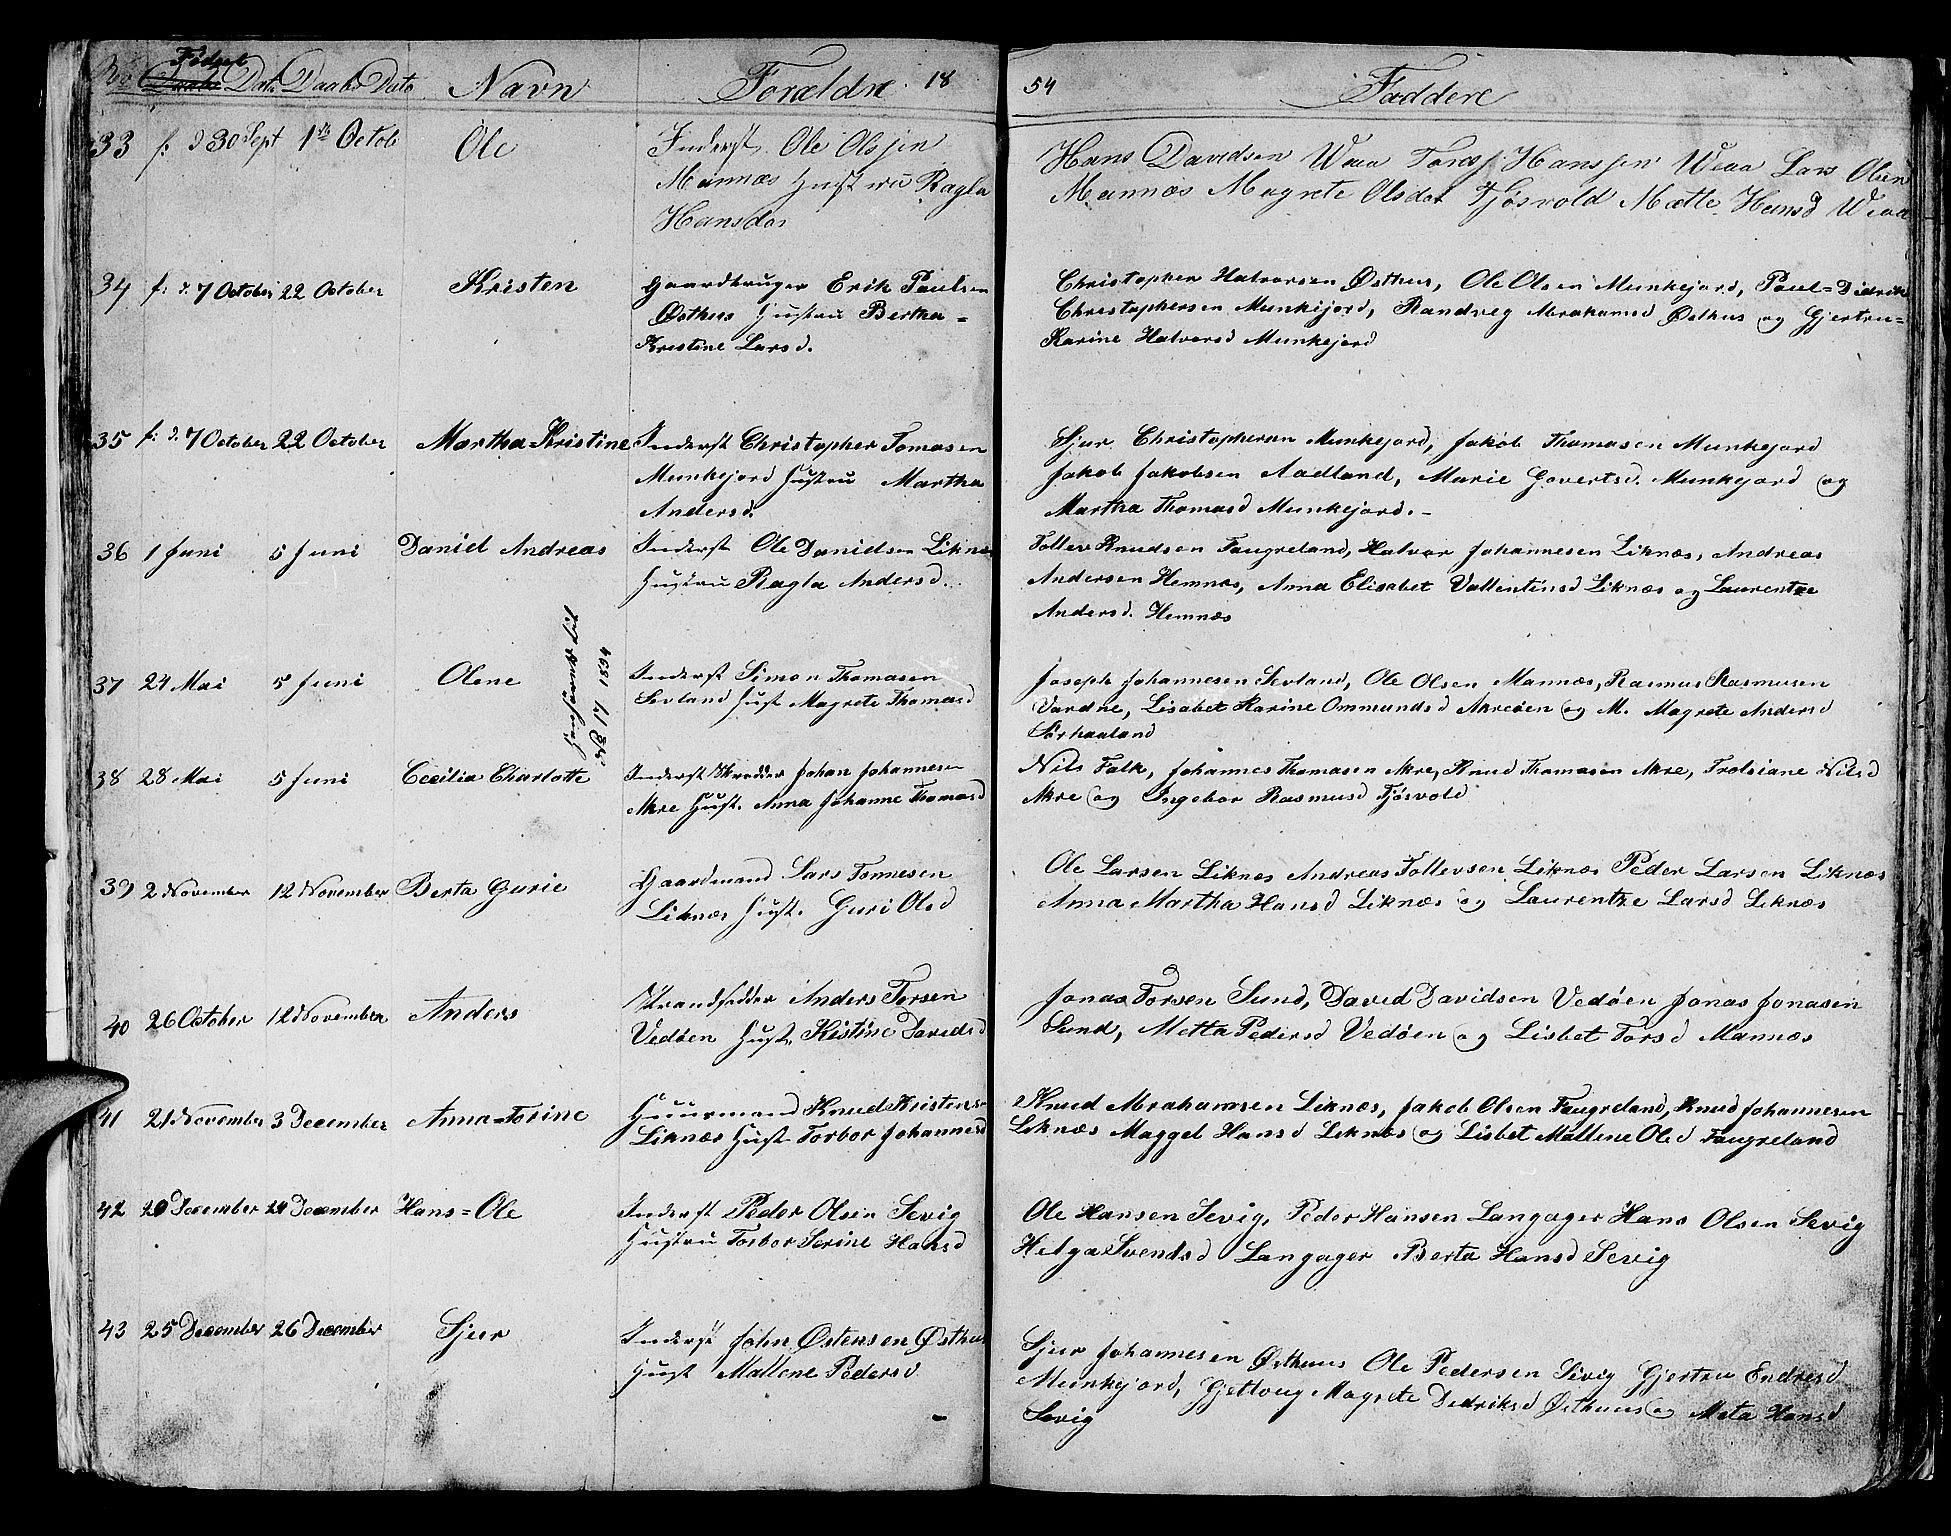 No Fødsel Dat. Daabs Dato Navn Forældre 18
54 Faddere
33 f: d 30 Sept 1te Octob Ole Inderst Ole Olsjen
Mannæs Hustru Ragla
Hansdor
Hans Davidsen Weaa Hansjen Weaa Lars Olsen
Mannæs Magrete Olsdor Tjøsvold Mætte Hansd Weaa
34 f: d. 7 October 22 October Kristen Gaardbruger Erik Paulsen
Østhus Hustru Bertha=
Kristine Larsd.
Christopher Halvorsen Østhus, Ole Olsen Munkejord, Paul=Didrik
Christophersen Munkijord, Randveg Abrahamsd Østhus og Gjertru=
Karine Halvorsd Munkejord
35 f: d. 7 October 22 October Martha=Kristine Inderst Christopher Tomasen
Munkejord Hustru Martha
Andersd.
Sjur Christophersen Munkejord, Jakob Thomasen Munkejord
Jakob Jakobsen Aadland, Marie Govertsd. Munkejord og
Martha Thomasd Munkejord.-
36 1 Juni 5 Juni Daniel Andreas Inderst Ole Danielsen Liknæs
Hustru Ragla Andersd.
Tollev Knudsen Faugreland, Halvor Johannesen Liknæs, Andreas
Andersen Hemnæs, Anna Elisabet Vallentinsd Liknæs og Laurentze
Andersd. Hemnæs
37 24 Mai 5 Juni Olene Inderst Simon Thomasen
Sevland Hust Magrete Thomasd
til
No 17 1834
Joseph Johannesen Sevland, Ole Olsen Mannæs, Rasmus Rasmusen
Vardne, Lisabet Karine Ommundsd Akreøen og M. Magrete Andersd
Sørhaaland
38 28 Mai 5 Juni Cecilia Charlotte Inderst Skredder Johan Johannesen
Akre Hust. Anna Johanne Thomasd
Nils Falk, Johannes Thomasen Akre, Knud Thomasen Akre, Nilsd
Akre og Ingebor Rasmusd Tjøsvold
39 2 November 12 November Berta Gurie Gaardmand Lars Tønnesen
Liknæs Hust. Guri Olsd
Ole Larsen Liknes Andreas Tollevsen Liknæs Peder Larsen Liknæs
Anna Martha Hansd Liknæs og Laurentze Larsd Liknæs
40 26 October 12 November Anders Strandsidder Anders Torsen
Vedøen Hust. Kistine Davidsd
Jonas Torsen Sund, David Davidsen Vedøen Jonas Jonasen
Sund, Metta Pedersd Vedøen og Lisbet Torsd Mannæs
41 21 November 3 December Anna=Torine Huusmand Knud Kristensen
Liknæs Hust Torbor Johannesd
Knud Abrahamsen Liknæs, Jakob Olsen Faugreland, Knud Johannesen
Liknæs Maggel Hansd Liknæs og Lisbet Mallene Olsd Faugreland
42 20 December 24 December Hans=Ole Inderst Peder Olsen Sevig
Hustru Torbor Serine Hansd
Ole Hansen Sevig, Peder Hansen Langager Hans Olsen Sevig
Helga Svendsd Langager Berta Hansd Sevig
43 25 December 26 December Sjur Inderst John Østensen Østhus
Hust Mallene Pedersd
Sjur Johannesen Østhuus Ole Pedersen Sevig Gjertru Endresd
Munkejord, Magrete Dedriksd Østhuus og Meta Hansd
Sevig